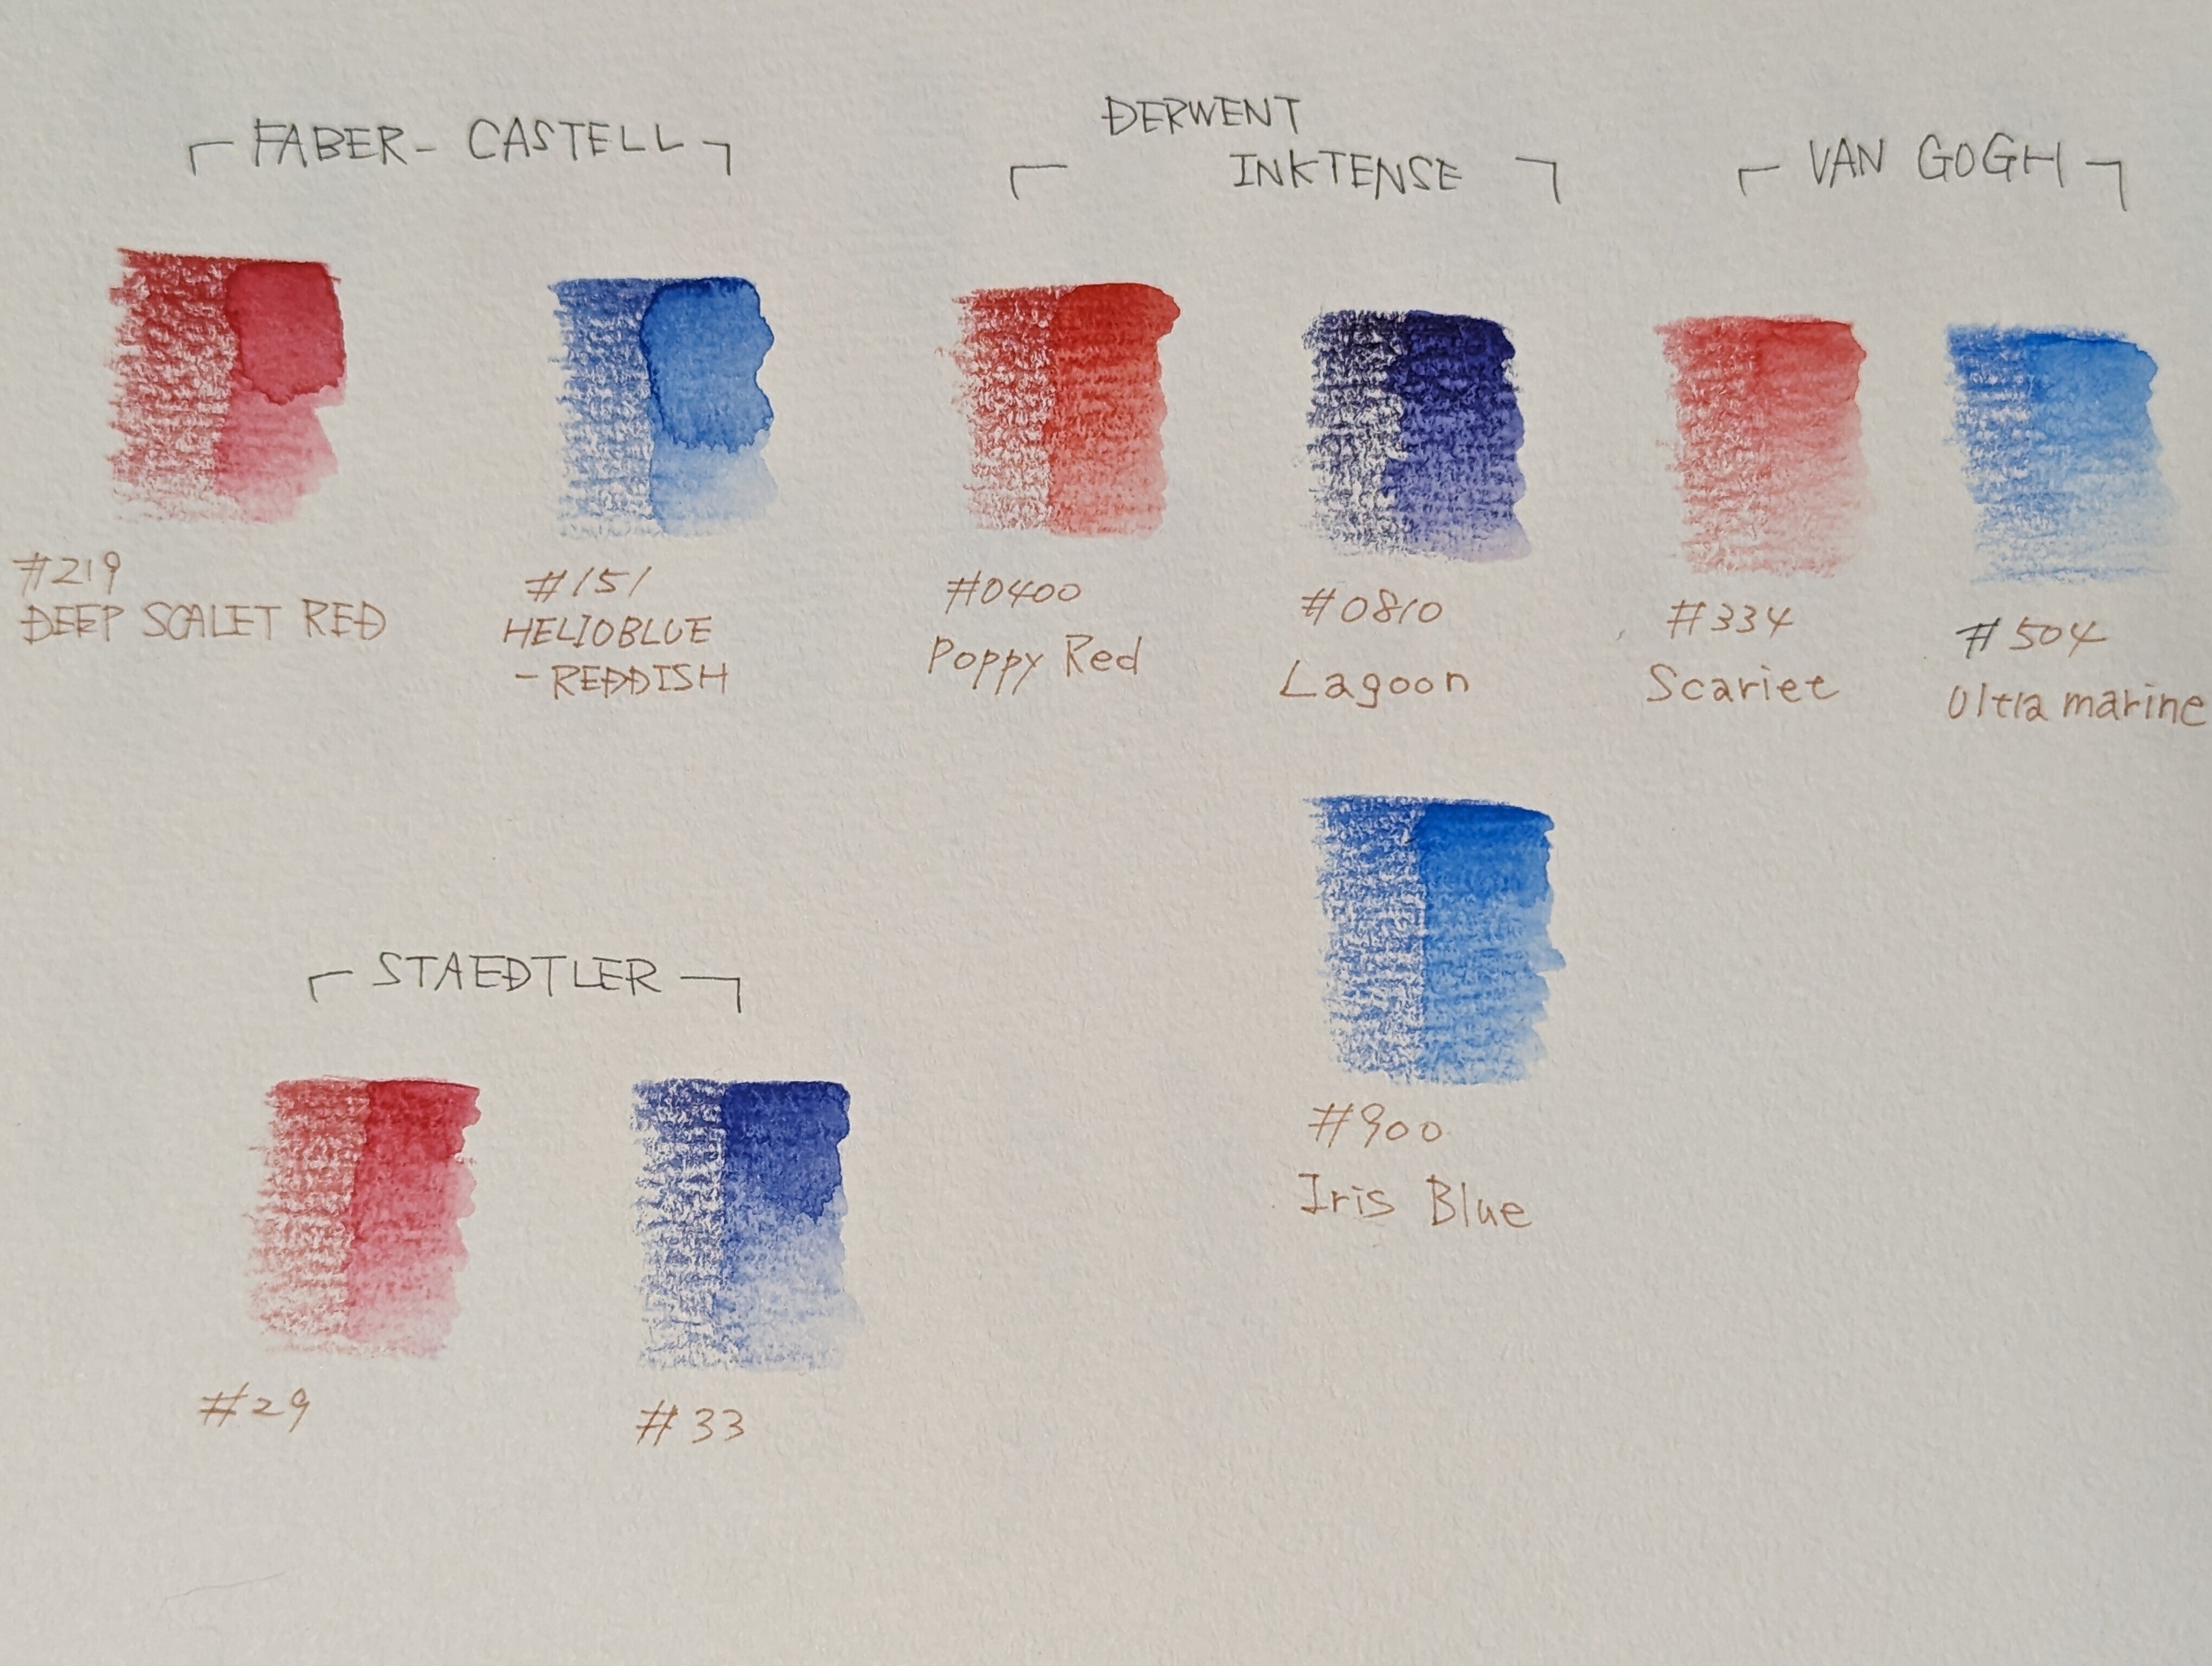 FABER- CASTELL
#219
DEEP SCALET RED
#151
HELIOBLUE
- REDDISH
DERWENT
INKTENSE
#0400
Poppy Red
#0810
Lagoon
#900
Iris Blue
VAN GOGH
#334
Scariet
#504
Ultra marine
STAEDTLER
#29
#33